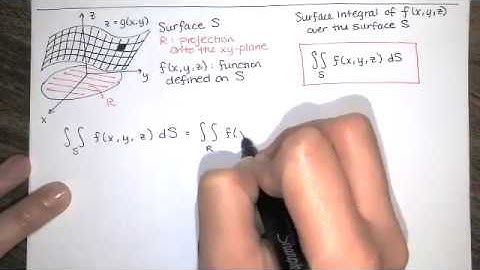 z
z = g(x,y)
y
x
R
Surface S
R : projection
onto the xy-plane
f(x,y,z) : function
defined on S
Surface Integral of f(x,y,z)
over the surface S
∬_S f(x,y,z) dS
∬_S f(x,y,z) dS = ∬_R f(
Sharpie